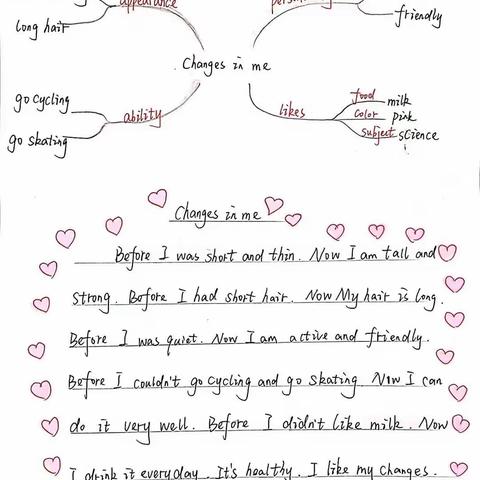 appearance
long hair
friendly
Changes in me
go cycling
go skating
ability
likes
food milk
color pink
subject science
Changes in me
Before I was short and thin. Now I am tall and
strong. Before I had short hair. Now My hair is long.
Before I was quiet. Now I am active and friendly.
Before I couldn't go cycling and go skating. Now I can
do it very well. Before I didn't like milk. Now
I drink it everyday. It's healthy. I like my changes.